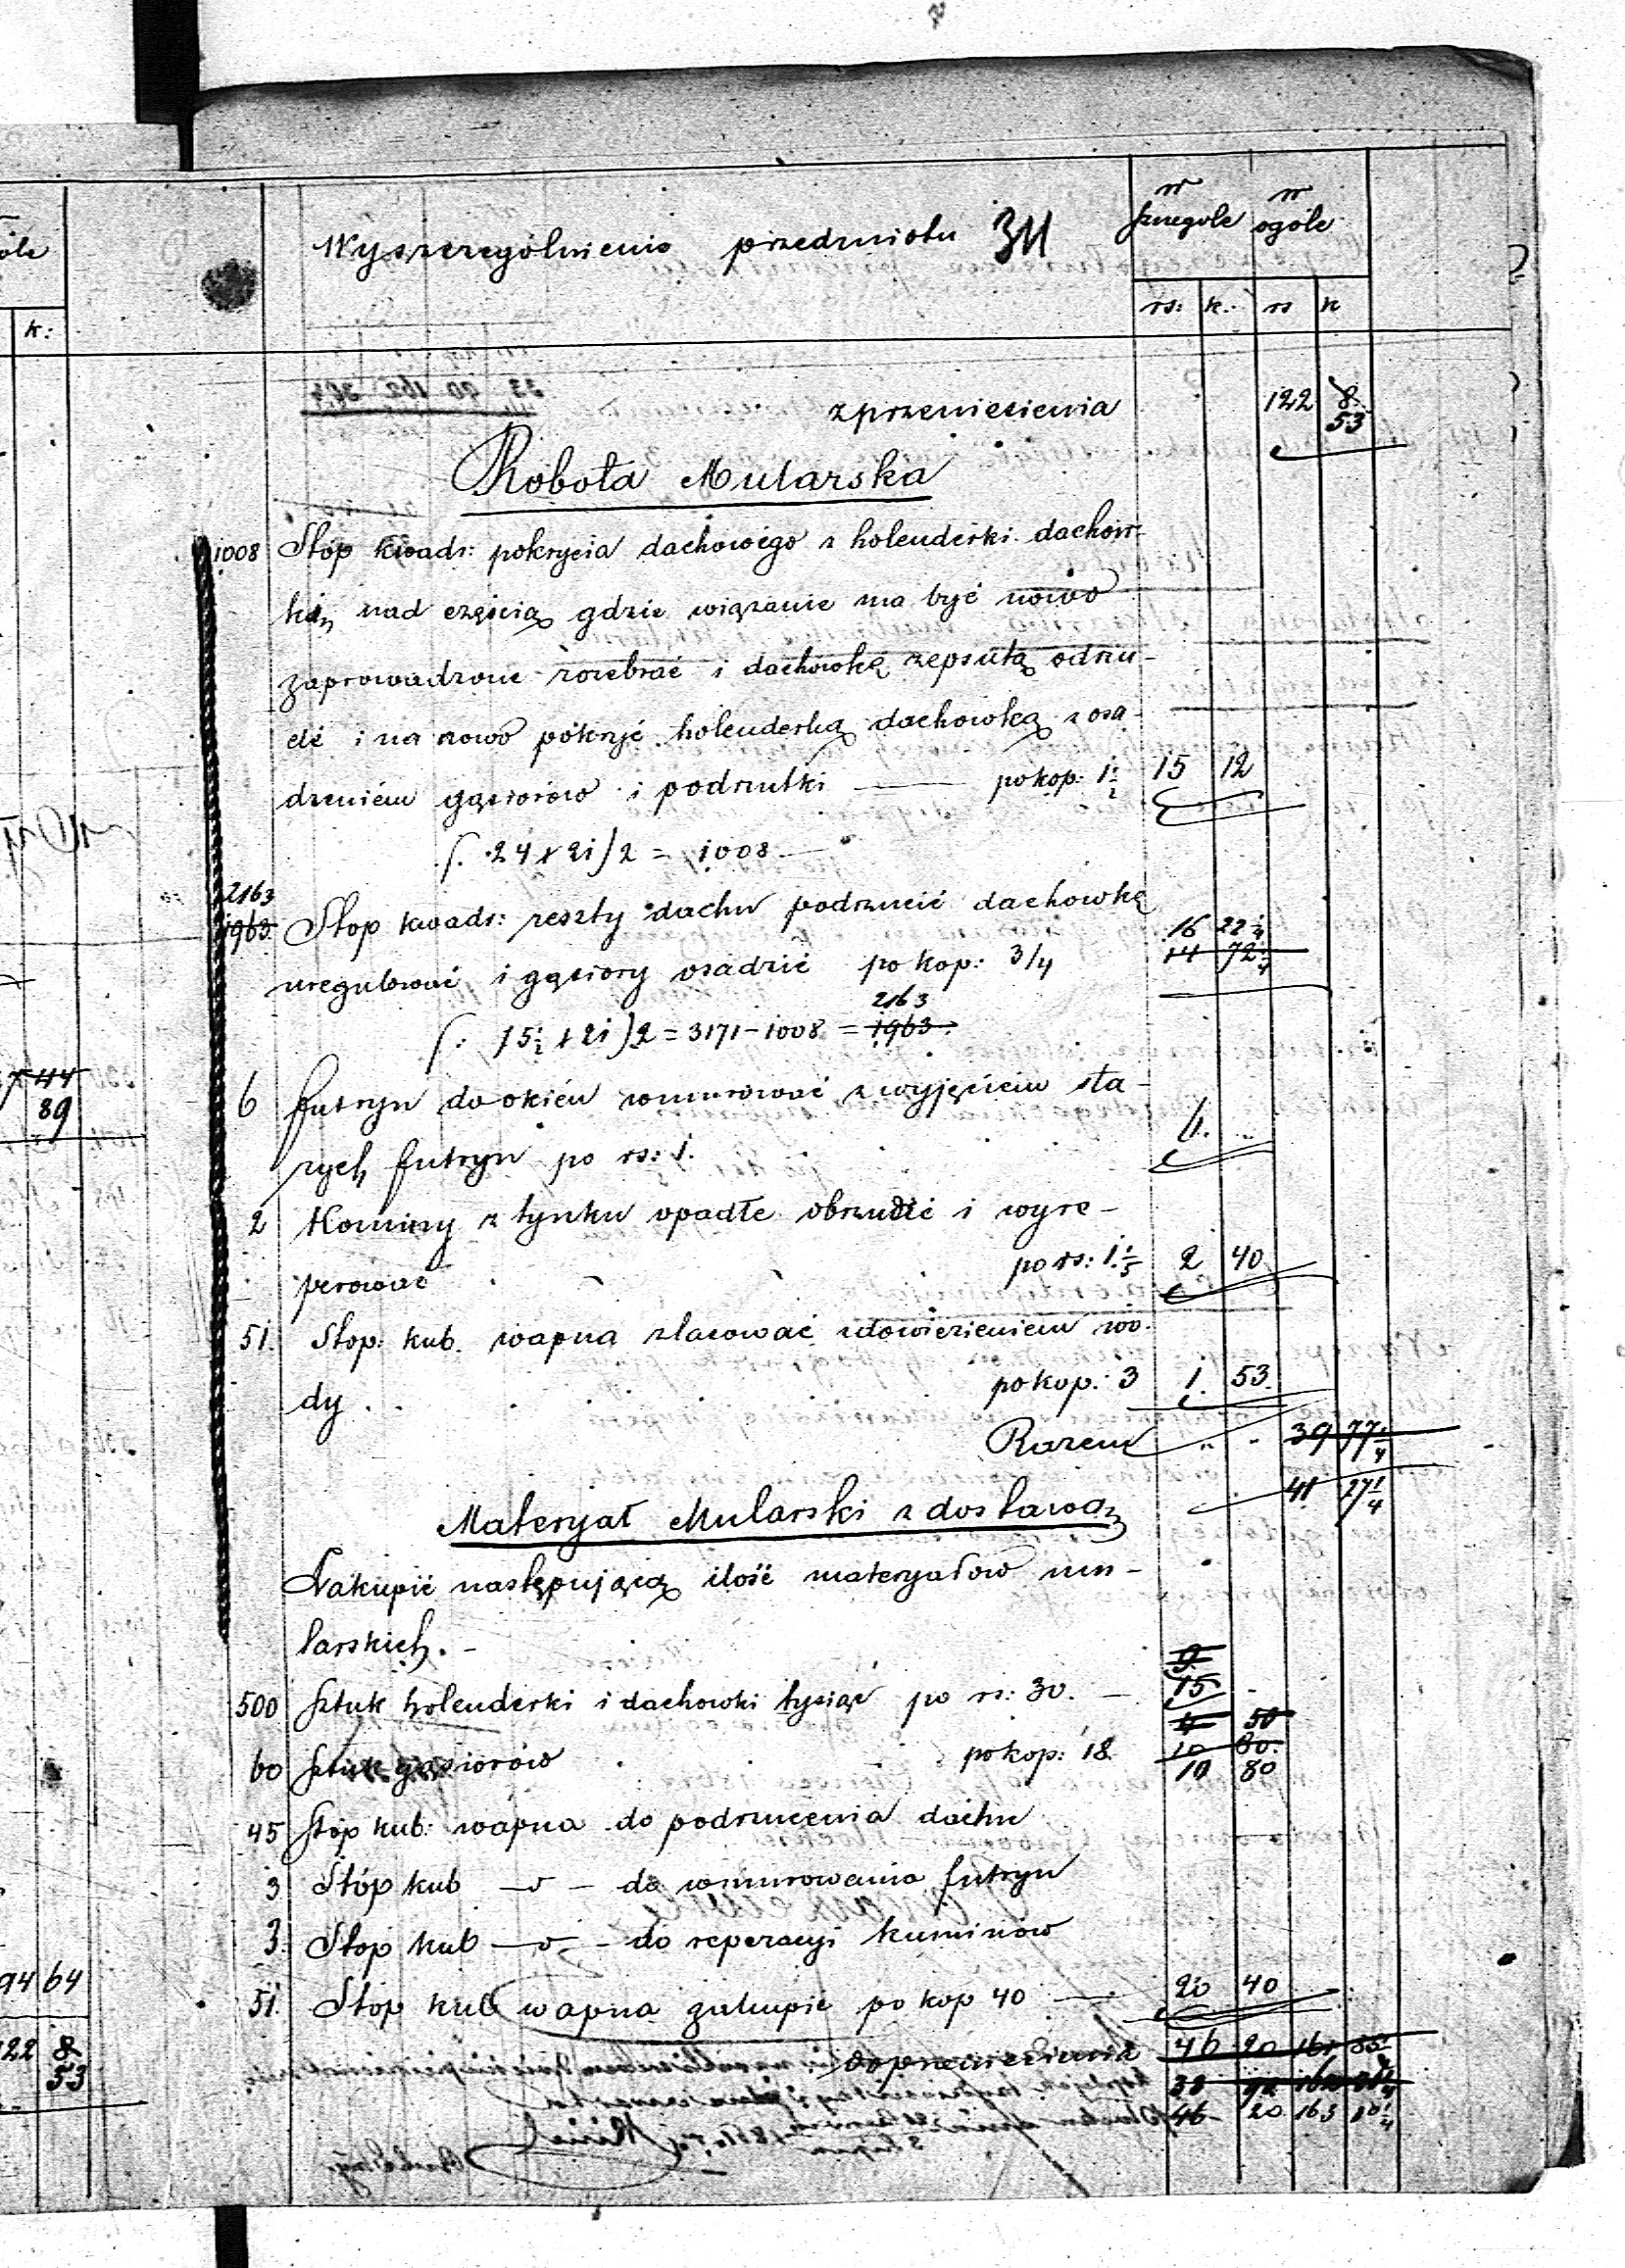 Wyszczególnienie przedmiotu 311
w szczegole w ogóle
rs: k. rs k
k:
z przeniesienia 122 8
53
Robota Mularska
1008 Stóp kwadr: pokrycia dachowego z holenderki dachów-
ką nad częścią gdzie wiązanie ma być nowo
zaprowadzone rozebrać i dachówkę zepsutą odrzu-
cić i na nowo pokryć holenderką dachowką z osa-
dzeniem gąsiorów i podrzutki — po kop: 1 1/2 15 12
/. 24 x 21 / 2 = 1008 —
2163
1963 Stop kwadr: reszty dachu podrzucić dachowkę
16 22 1/4
uregulować i gąsiory osadzić po kop: 3/4 14 72 1/4
2163
/: 75 1/2 x 21 ) 2 = 3171 - 1008 = 1963
6 futryn do okien wmurować z wyjęciem sta-
rych futryn po rs: 1. 6. ..
2 Kominy z tynku opadłe obrzucić i wyre-
perować po rs: 1. 1/5 2 40
51. Stop: kub. wapna zlasować z dowiezieniem wo-
dy . . po kop: 3 1. 53.
Razem .. - 39 77 1/4
41 27 1/4
Materyał Mularski z dostawą
Nakupić następującą ilość materyałow mu-
larskich. -
9
500 sztuk holenderki i dachowki tysiąc po rs: 30. — 15 -
4 50
60 sztuk gąsiorów po kop: 18. 10 80.
10 80
45 stóp kub: wapna do podrzucenia dachu
3 Stóp kub —v— do wmurowania futryn
3. Stop kub —v— do reperacyi kuminów
51. Stop kub wapna zakupić po kop 40 — 20 40
do przeniesienia 46 20 161
46 20 163 10 1/4
44
89
94 64
22 8
53